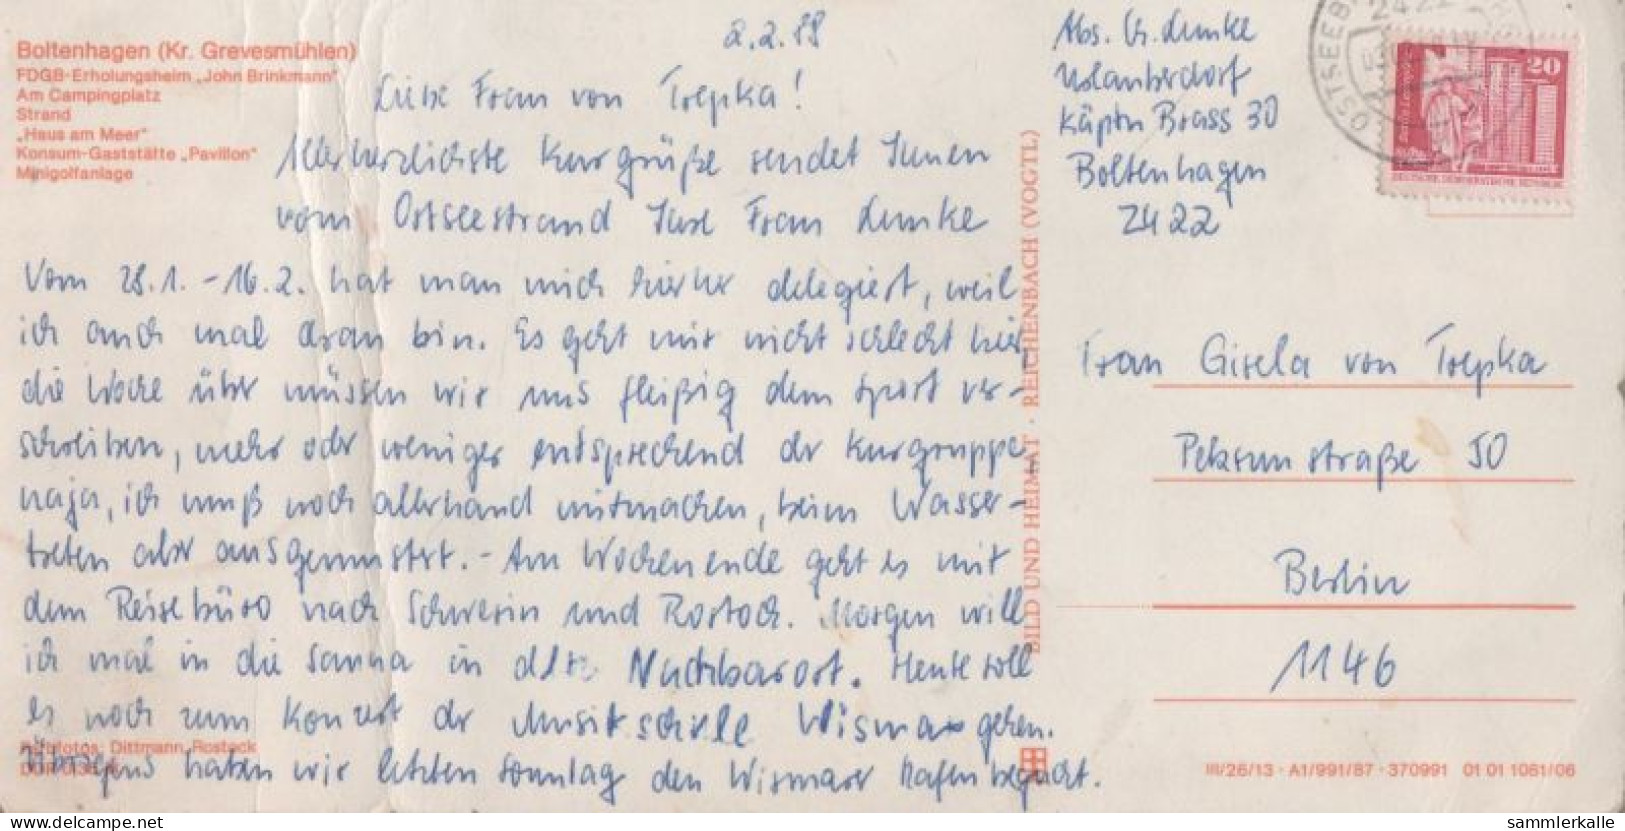 Boltenhagen (Kr. Grevesmühlen)
FDGB-Erholungsheim „John Brinkmann"
Am Campingplatz
Strand
„Haus am Meer"
Konsum-Gaststätte „Pavillon"
Minigolfanlage
2.2.88
Liebe Frau von Trepka!
Allerherzlichste Kurgrüße sendet Ihnen
vom Ostseestrand Ihre Frau Lemke
Vom 28.1. - 16.2. hat man mich hierher delegiert, weil
ich auch mal dran bin. Es geht mir nicht schlecht hier,
die Woche über müssen wir uns fleißig dem Sport ver-
schreiben, mehr oder weniger entsprechend der Kurgruppe
naja, ich muß noch allerhand mitmachen, beim Wasser-
treten aber ausgemustert. - Am Wochenende geht es mit
dem Reisebüro nach Schwerin und Rostock. Morgen will
ich mal in die Sauna in den Nachbarort. Heute soll
es noch zum Konzert der Musikschule Wismar gehen.
Übrigens haben wir letzten Sonntag den Wismarer Hafen beguckt.
Fotos: Dittmann, Rostock
BILD UND HEIMAT · REICHENBACH (VOGTL)
Abs. G. Lemke
Urlauberdorf
Käptn Brass 30
Boltenhagen
2422
OSTSEEB
2422
20
DEUTSCHE DEMOKRATISCHE REPUBLIK
Frau Gisela von Trepka
Peksunstraße 50
Berlin
1146
III/26/13 · A1/991/87 · 370991 01 01 1061/06
sammlerkalle